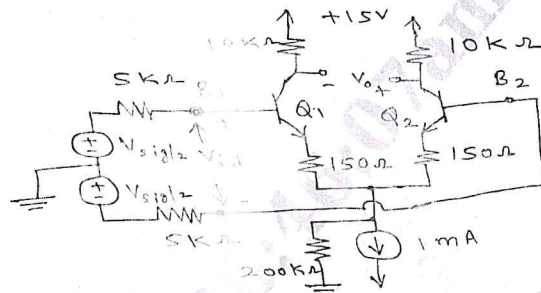 +15V
10KΩ
10KΩ
5KΩ
Vo
+
-
B2
Q1
Q2
Vsig/2
Vid
150Ω
150Ω
Vsig/2
5KΩ
1mA
200KΩ